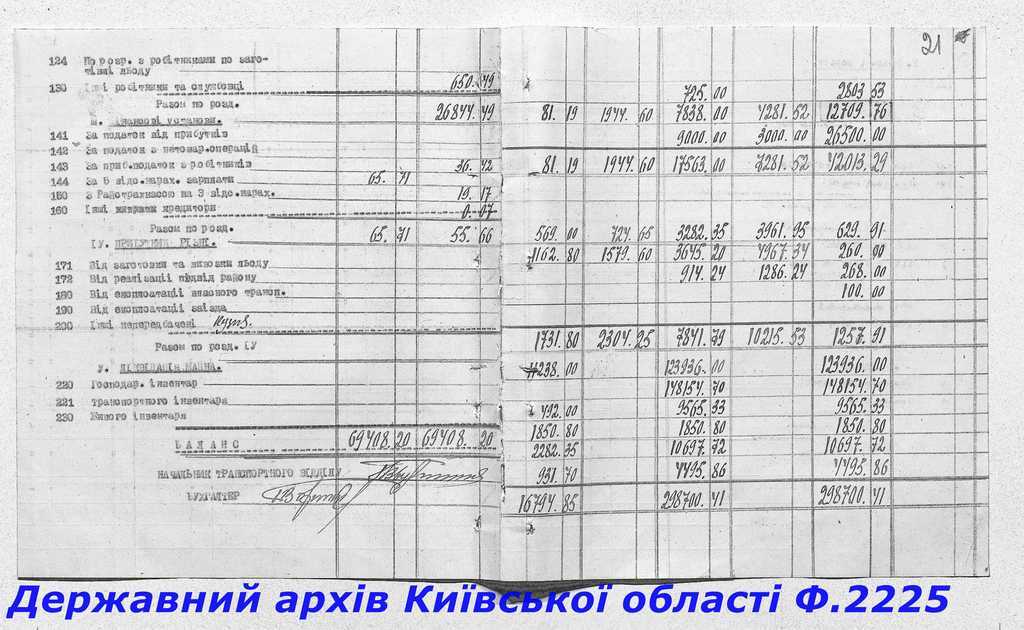 21
124 По розр. з робітниками по заго-
тівлі льоду
130 Інші робітники та службовці 650.49
Разом по розд. 26844.49
Ш. Фінансові установи.
141 За податок від прибутків
142 За податок з нетовар.операцій
143 За приб.податок з робітників 36.42
144 За 5 відс.нарах. зарплати 65.71
150 з Райстрахкасою на 3 відс.нарах. 19.17
160 Інші кредитори 0.07
Разом по розд. 65.71 55.66
ІУ.
171 Від заготовки та вивозки льоду
172 Від реалізації підвід району
180 Від експлоатації власного трансп.
190 Від експлоатації заїзда
200 Інші непередбачені
Разом по розд. ІУ
У.
220 Господар. інвентар
221 Транспортного інвентаря
230 Живого інвентаря
БАЛАНС 69408.20 69408.20
НАЧАЛЬНИК ТРАНСПОРТНОГО ВІДДІЛУ
БУХГАЛТЕР
725.00 2803 53
81.19 1944.60 7838.00 4281.52 12709.76
9000.00 3000.00 26500.00
81.19 1944.60 17563.00 7281.52 42013.29
569.00 724.65 3282.35 3961.95 629.91
1162.80 1579.60 3645.20 4967.34 260.00
914.24 1286.24 268.00
100.00
1731.80 2304.25 7841.79 10215.53 1257.91
11238.00 123936.00 123936.00
148154.70 148154.70
492.00 9565.33 9565.33
1850.80 1850.80 1850.80
2282.35 10697.72 10697.72
931.70 4495.86 4495.86
16794.85 298700.41 298700.41
Державний архів Київської області Ф.2225